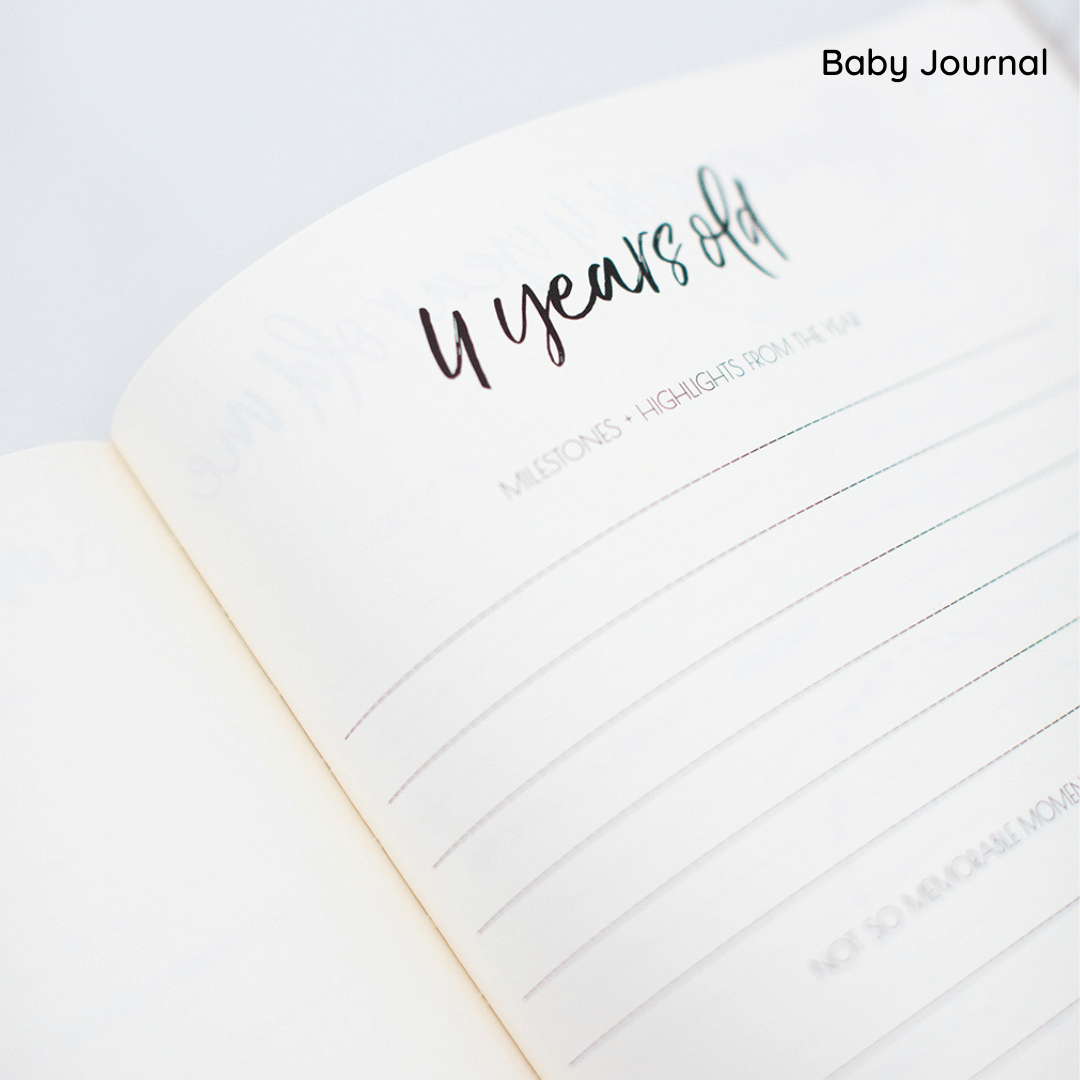 Baby Journal
4 years old
MILESTONES + HIGHLIGHTS FROM THE YEAR
NOT SO MEMORABLE